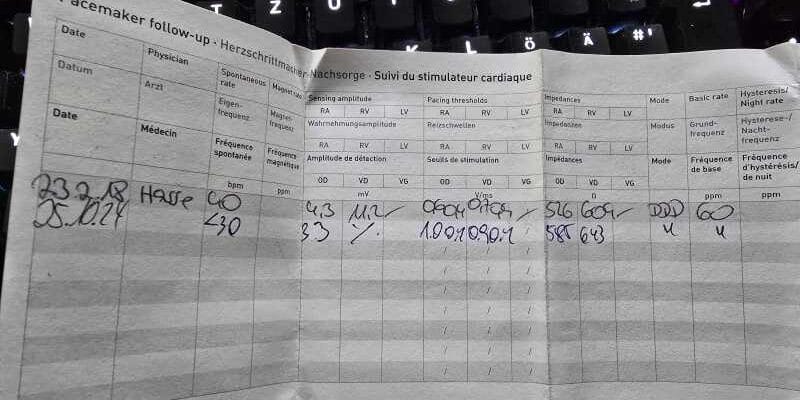 Pacemaker follow-up · Herzschrittmacher-Nachsorge · Suivi du stimulateur cardiaque
Date Physician Spontaneous rate Magnet rate Sensing amplitude Pacing thresholds Impedances Mode Basic rate Hysteresis/ Night rate
RA RV LV RA RV LV RA RV LV
Datum Arzt Eigen-frequenz Magnet-frequenz Wahrnehmungsamplitude Reizschwellen Impedanzen Modus Grund-frequenz Hysterese-/ Nacht-frequenz
RA RV LV RA RV LV RA RV LV
Date Médecin Fréquence spontanée Fréquence magnétique Amplitude de détection Seuils de stimulation Impédances Mode Fréquence de base Fréquence d'hystérésis/ de nuit
OD VD VG OD VD VG OD VD VG
bpm ppm mV V/ms Ω ppm ppm
23.2.18 Hasse 40 4,3 11.2 526 604 DDD 60
25.10.24 <30 3.3 585 643
K L Ö Ä #'